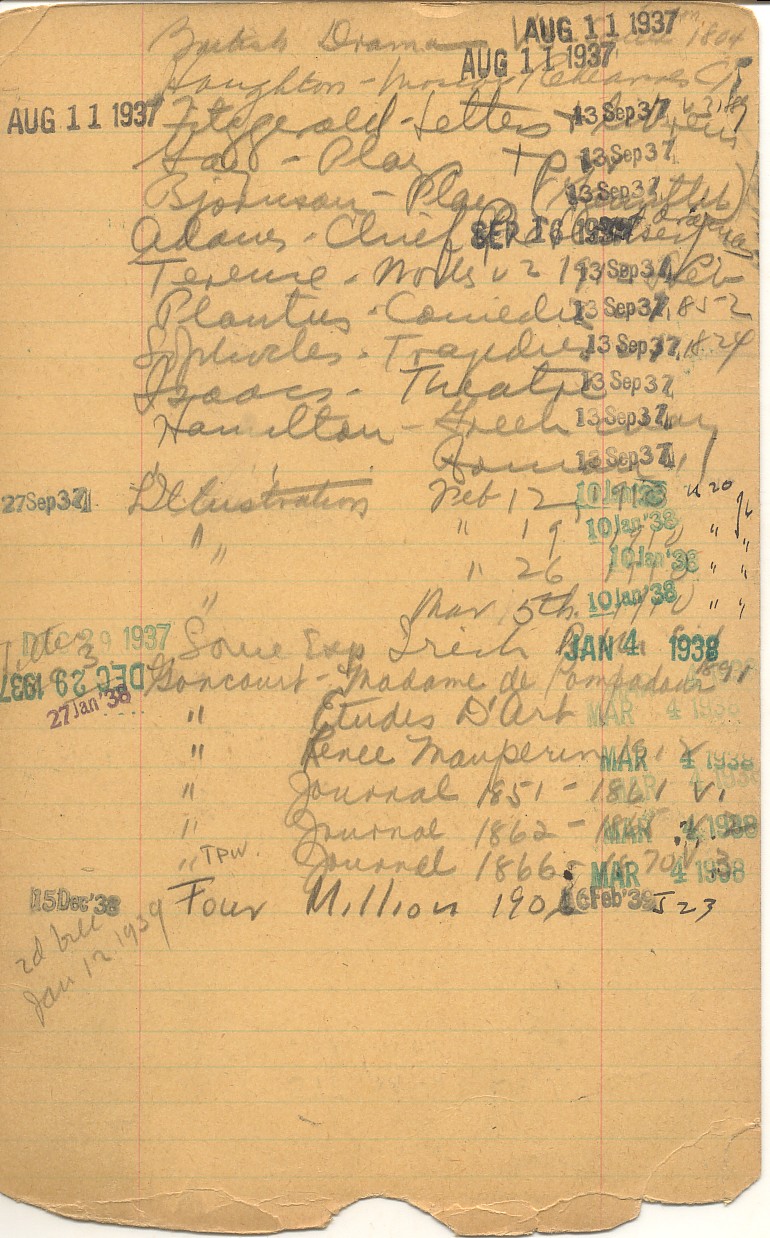 British Drama AUG 11 1937 1804
Houghton - AUG 11 1937
AUG 11 1937 Fitzgerald - Letters + 13 Sep 37 v 2, 89
- Play + 13 Sep 37
Bjornson - Play 13 Sep 37
Adams - Chief SEP 16 1937 Dramas
Terence - Works v 2 13 Sep 37
Plautus - Comedies 13 Sep 37 1852
Sophocles - Tragedies 13 Sep 37 1824
Isaacs - Theatre 13 Sep 37
Hamilton - Greek Way 13 Sep 37
Roman 13 Sep 37
27 Sep 37 L'Illustration Feb 12 10 Jan '38
" " " 19 10 Jan '38 " "
" " 26 10 Jan '38 " "
" Mar 5th 10 Jan '38 " "
DEC 29 1937 Some Exp Irish JAN 4 1938
DEC 29 1937 Goncourt - Madame de Pompadour 1891
27 Jan '38 " Etudes D'Art MAR 4 1938
" Renee Mauperin MAR 4 1938
" Journal 1851 - 1861 v. 1 MAR 4 1938
" Journal 1862 - MAR 4 1938
" TPW. Journal 1866 - 70 v. 3 MAR 4 1938
15 Dec '38 Four Million 16 Feb '39 J 23
2d bill
Jan 12 1939